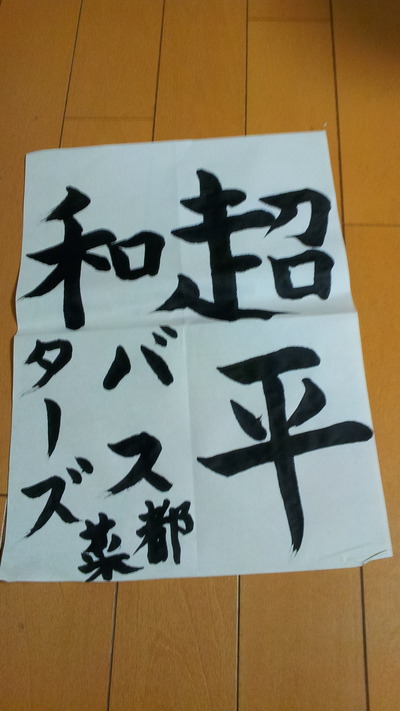 超平
和
バス
ターズ
都菜